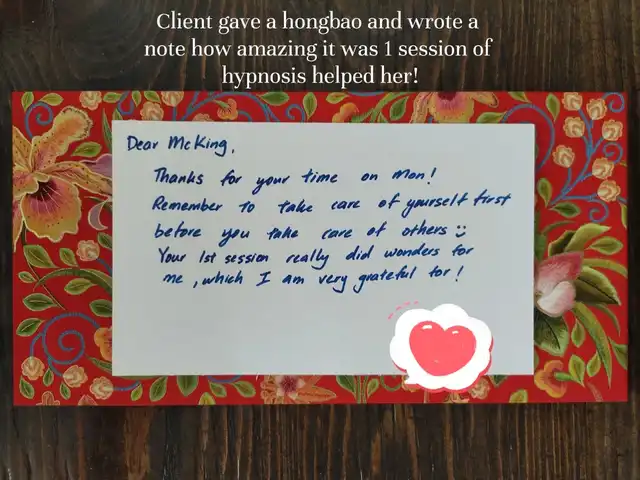 Client gave a hongbao and wrote a
note how amazing it was 1 session of
hypnosis helped her!
Dear McKing,
Thanks for your time on Mon!
Remember to take care of yourself first
before you take care of others :)
Your 1st session really did wonders for
me, which I am very grateful for!